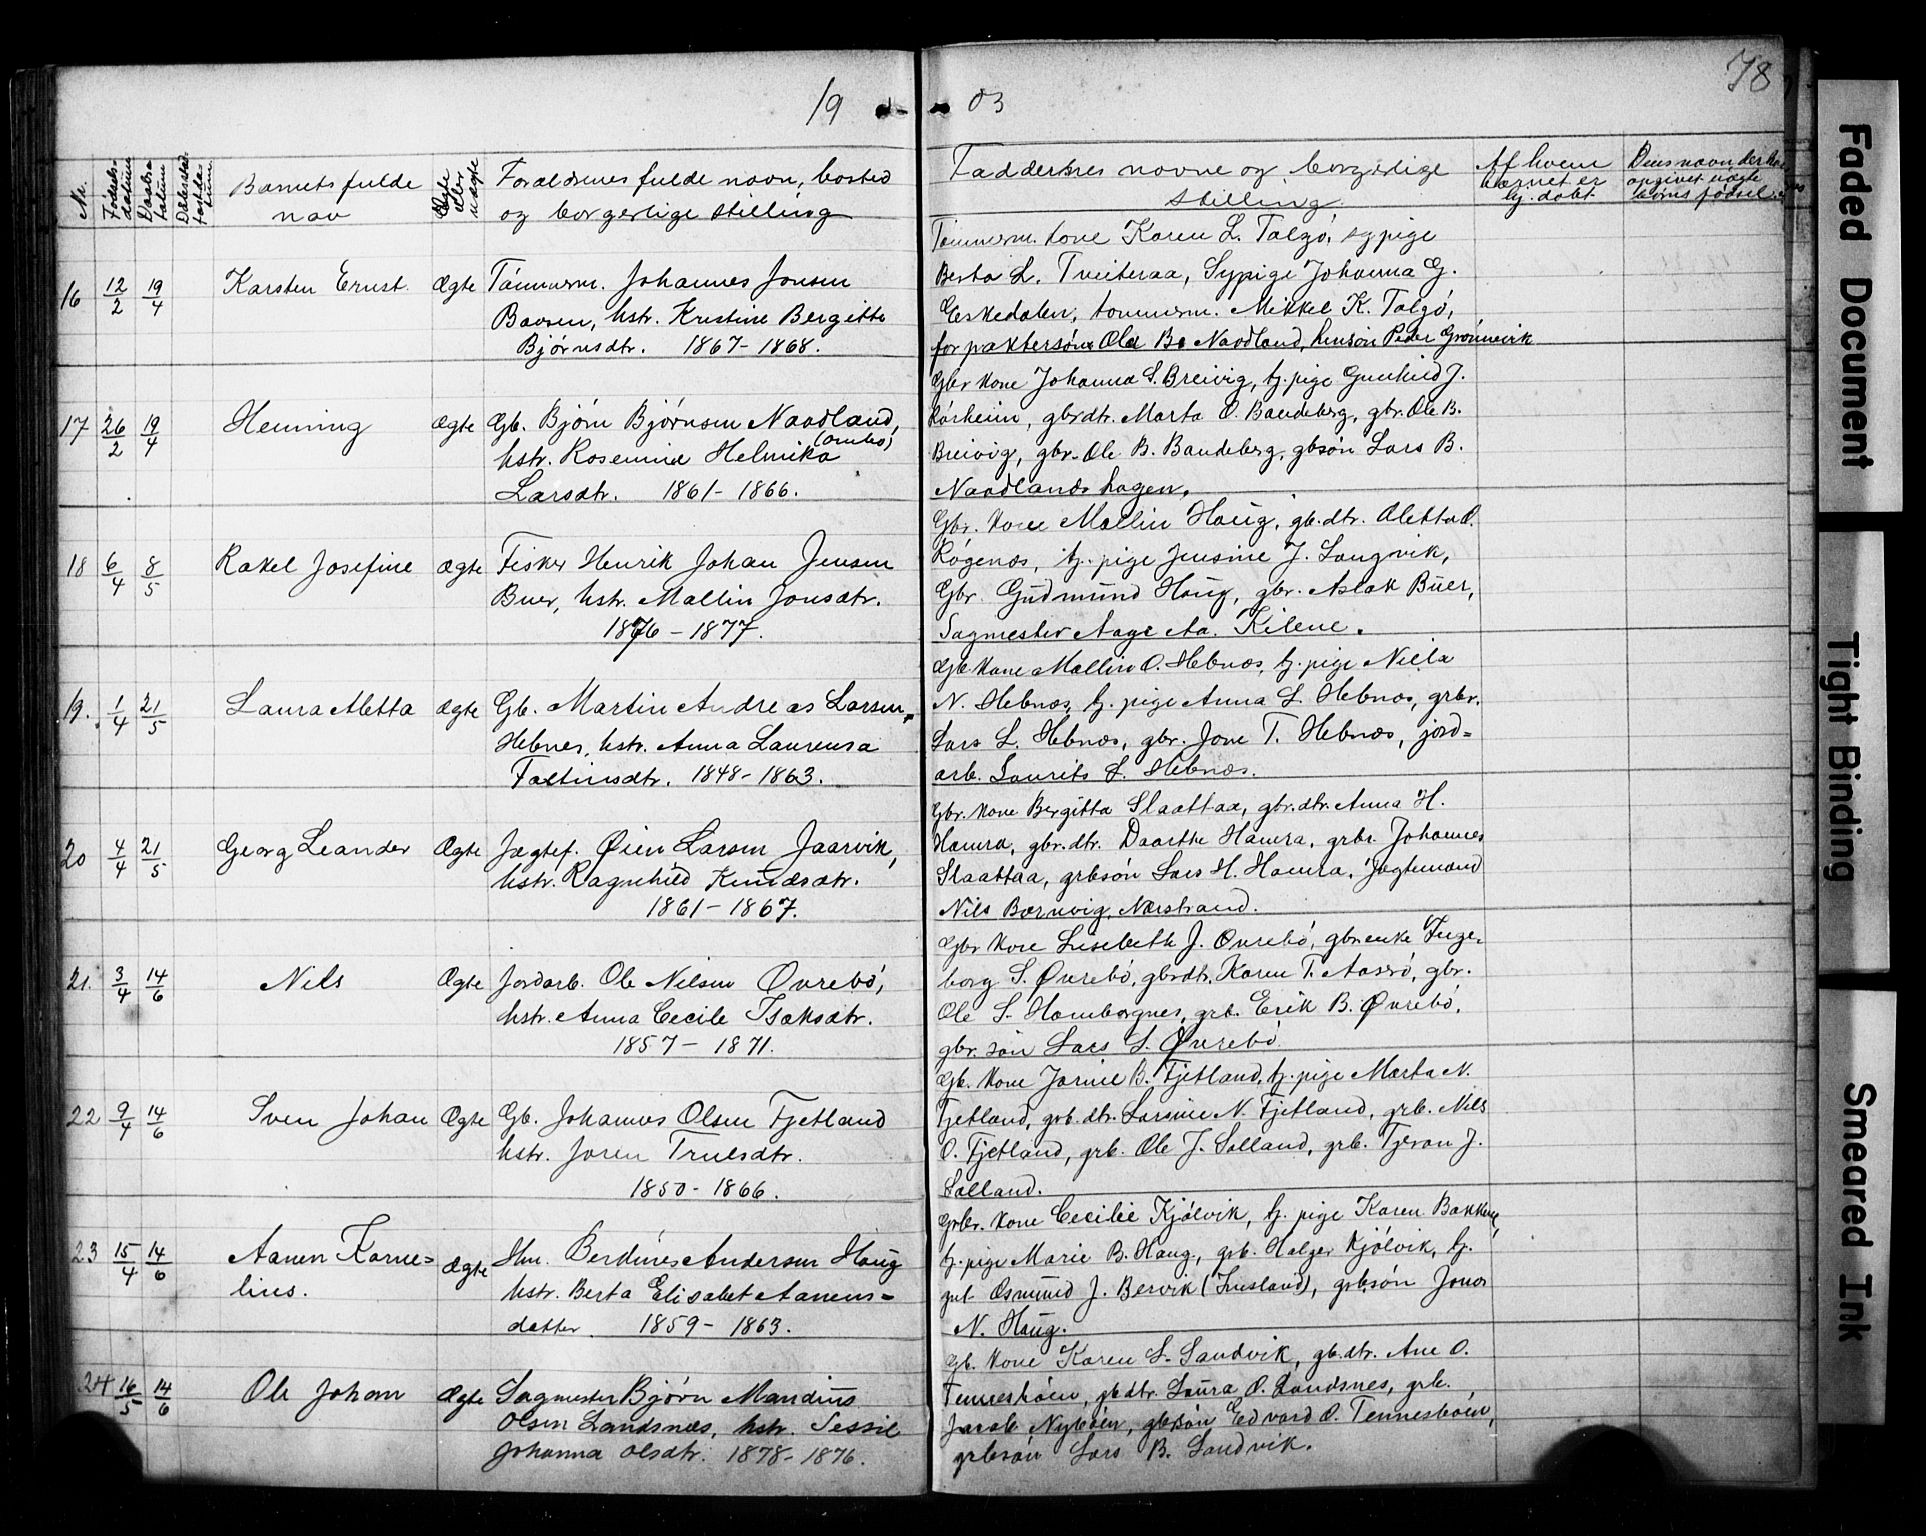 19 03
78
No.
Fødsels datum
Daabs datum
Barnets fulde
nav
Ægte eller uægte
Forældrenes fulde navn, bosted
og borgerlige stilling
Faddernes navne og borgerlige
stilling
Af hvem
barnet er
hj. døbt
16 12/2 19/4 Karsten Ernst. Ægte Tømmerm. Johannes Jonsen
hstr. Kristine Bergitte
Bjørnsdtr. 1867-1868.
Tømmerm. kone Karen L. Talgø, sypige
Berta L. Tveiteraa, Sypige Johanna G.
Eskedalen, tømmerm. Mikkel K. Talgø,
forpaktersøn Ola B. Naadland, Peder Grønnevik
17 26/2 19/4 Henning Ægte Gb. Bjørn Bjørnsen Naadland,
(Ombo)
hstr. Rosemine Helmika
Larsdtr. 1861-1866.
Gbr kone Johanna S. Breivig, tj. pige Gunhild J.
gbrdtr. Marta O. Bandeberg, gbr. Ole B.
Breivig, gbr. Ole B. Bandeberg, gbsøn Lars B.
Naadlandshagen.
18 6/4 8/5 Rakel Josefine Ægte Fisker Henrik Johan Jensen
Buer, hstr. Mallin Jonsdtr.
1876-1877.
Gbr. kone Mallin Haug, gb. dtr. Aletta O.
Røgenæs, tj. pige Jensine J. Langvik,
Gbr. Gudmund Haug, gbr. Aslak Buer,
Sagmester Aage Aa. Kilene.
19. 1/4 21/5 Laura Aletta Ægte Gb. Martin Andreas Larsen,
Hebnes, hstr. Anna Laurensa
Faltinsdtr. 1848-1863.
Gb kone Mallin O. Hebnæs, tj. pige Niela
N. Hebnæs, tj. pige Anna L. Hebnæs, grbr.
Lars L. Hebnæs, gbr. Jone T. Hebnæs, jord=
arb. Laurits L. Hebnæs.
20 4/4 21/5 Georg Leander Ægte Jægtef. Øien Larsen Jaarvik,
hstr. Ragnhild Knudsdtr.
1861-1867.
Gbr. kone Bergitta Slaattaa, gbr. dtr. Anna H.
Hamra, gbr. dtr. Daarthe Hamra, grbr. Johannes
Slaattaa, grbsøn Lars H. Hamra, Jægtemand
Nils Barnvig, Nærstrand.
21. 3/4 14/6 Nils Ægte Jordarb. Ole Nilsen Øvrebø,
hstr. Anna Cecile Isaksdtr.
1857-1871.
Gbr kone Lisebeth J. Øvrebø, gbr enke Inge-
borg S. Øvrebø, gbrdtr. Karen T. gbr.
Ole S. Hamborgnes, grb. Erik B. Øvrebø,
gbr. søn Lars L. Øvrebø
22 9/4 14/6 Sven Johan Ægte Gb. Johannes Olsen Fjetland
hstr. Joren Trulsdtr.
1850-1866.
Gb. kone Jorine B. Fjetland, tj. pige Marta N.
Fjetland, grb. dtr. Larsine N. Fjetland, grb. Nils
O. Fjetland, grb. Ole J. Salland, grb. Tjeran J.
Salland.
23 15/4 14/6 Aanen Korne=
lius. Ægte Hm. Berdines Andersen Haug
hstr. Berta Elisabet Aanens=
datter. 1859-1863.
Grbr. kone Cecilie Kjølvik, tj. pige Karen Bakken,
tj. pige Marie B. Haug, grb. Helger Kjølvik, tj.
gut Osmund J. Bervik (Imsland), grbsøn Jonas
N. Haug.
24 16/5 14/6 Ole Johan Ægte Sagmester Bjørn Mandius
Olsen Landsnæs, hstr. Sessil
Johanna Olsdtr. 1878-1876.
Gb. kone Karen S. Sandvik, gb. dtr. Ane O.
Tennesbøen, gbdtr. Laura O. Landsnes, grb.
Jacob Nybøen, gbsøn Edvard O. Tennesbøen,
grbsøn Lars B. Sandvik.
Faded Document
Tight Binding
Smeared Ink